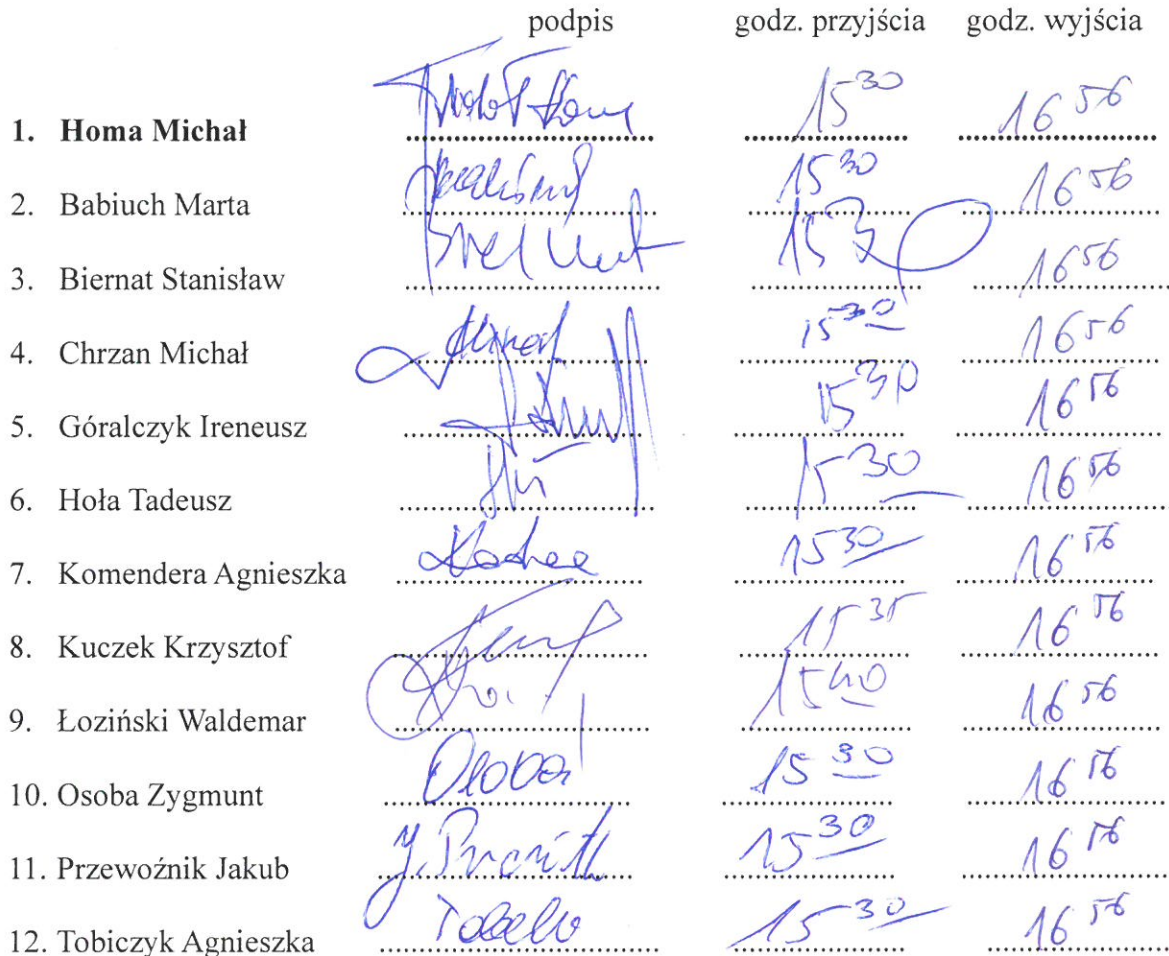 podpis godz. przyjścia godz. wyjścia
1. Homa Michał 15 30 16 56
2. Babiuch Marta 15 30 16 56
3. Biernat Stanisław 15 30 16 56
4. Chrzan Michał 15 30 16 56
5. Góralczyk Ireneusz 15 30 16 56
6. Hoła Tadeusz 15 30 16 56
7. Komendera Agnieszka 15 30 16 56
8. Kuczek Krzysztof 15 35 16 56
9. Łoziński Waldemar 15 40 16 56
10. Osoba Zygmunt Osoba 15 30 16 56
11. Przewoźnik Jakub 15 30 16 56
12. Tobiczyk Agnieszka 15 30 16 56